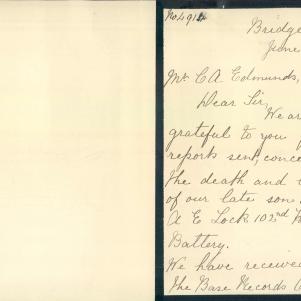 No 4914
Bridge
June
Mr. C A Edmunds,
Dear Sir,
We are
grateful to you
reports sent, conce
the death and
of our late son
A E Lock 102nd
Battery.
We have received
the Base Records